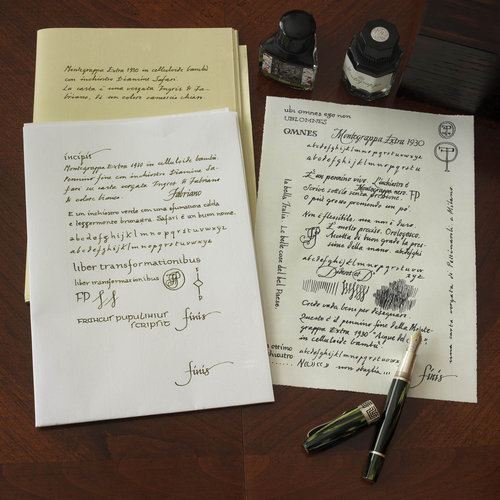 Montegrappa Extra 1930 in celluloide bambù
con inchiostro Diamine Safari.
La carta è una vergata Ingres di Fa-
briano, di un colore camoscio chiaro.
incipit
Montegrappa Extra 1930 in celluloide bambù.
Pennino fine con inchiostro Diamine Sa-
fari su carta vergata Ingres di Fabriano
di colore bianco.
Fabriano
È un inchiostro verde con una sfumatura calda
e leggermente bronzata. Safari è un buon nome.
abcdefghijklmnopqrstuvwxyz
abcdefghijklmnopqrstuvwxyz
liber transformationibus
liber transformationibus
FP
finis
finis
ubi omnes ego non
UBI OMNES
OMNES
Montegrappa Extra 1930
abcdefghijklmnopqrstuvwxyz
abcdefghijklmnopqrstuvwxyz
È un pennino vivo. L'inchiostro è
Montegrappa nero.
Scrive sottile senza pressione.
FP
O può grosso premendo un po'.
Non è flessibile, ma non è duro.
È molto preciso. Orologesco.
Accetta di buon grado la pres-
sione della mano. abcdefghi
abcdefghijklmnopqrstuvw
xyz
Credo vada bene per disegnare.
Questo è il pennino fine della Monte-
grappa Extra 1930
in celluloide bambù.
abcdefghijklmnopqrstuvwxyz
non sbaglia...
finis
la bella Italia. Le belle cose del bel Paese.
una carta vergata di
a Milano